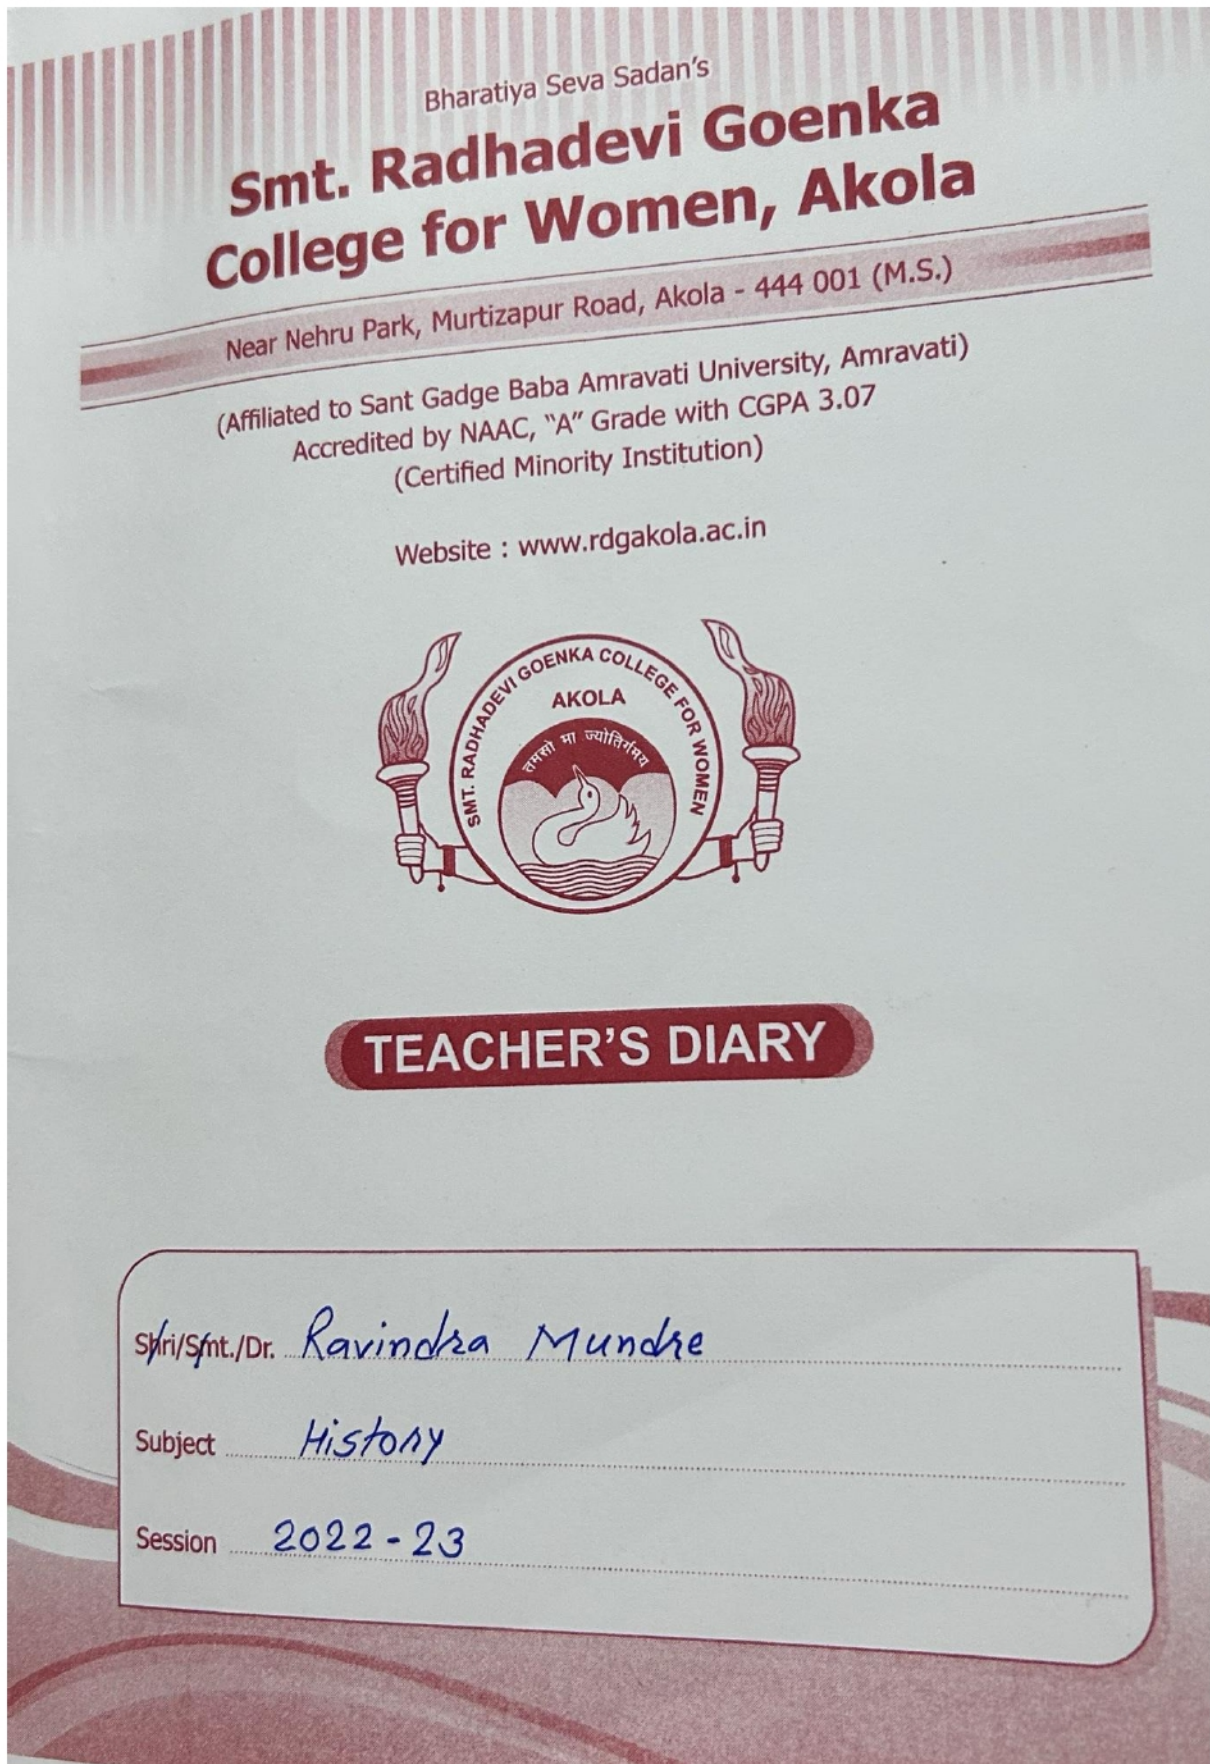 Bharatiya Seva Sadan's
Smt. Radhadevi Goenka
College for Women, Akola
Near Nehru Park, Murtizapur Road, Akola - 444 001 (M.S.)
(Affiliated to Sant Gadge Baba Amravati University, Amravati)
Accredited by NAAC, "A" Grade with CGPA 3.07
(Certified Minority Institution)
Website : www.rdgakola.ac.in
SMT. RADHADEVI GOENKA COLLEGE FOR WOMEN
AKOLA
तमसो मा ज्योतिर्गमय
TEACHER'S DIARY
Shri/Smt./Dr. Ravindra Mundre
Subject History
Session 2022-23